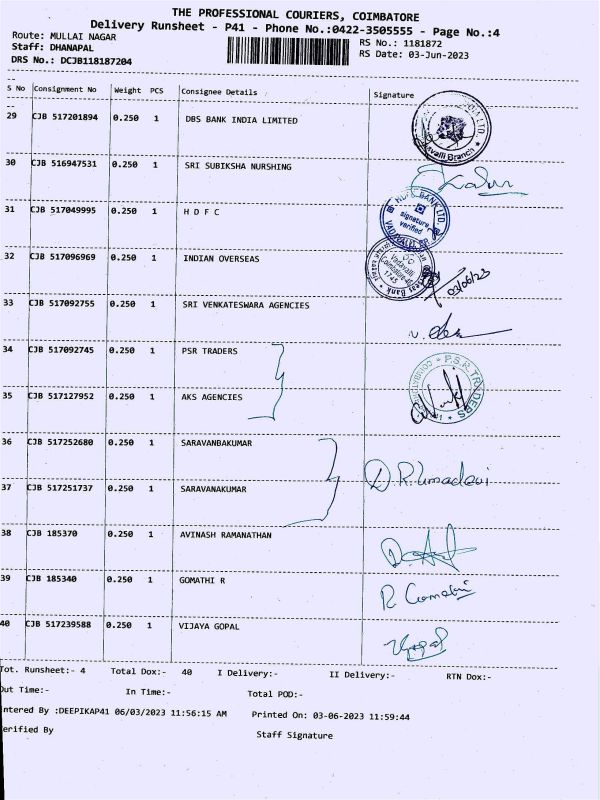 THE PROFESSIONAL COURIERS, COIMBATORE
Delivery Runsheet - P41 - Phone No.:0422-3505555 - Page No.:4
Route: MULLAI NAGAR RS No.: 1181872
Staff: DHANAPAL RS Date: 03-Jun-2023
DRS No.: DCJB118187204
S No Consignment No Weight PCS Consignee Details Signature
29 CJB 517201894 0.250 1 DBS BANK INDIA LIMITED
30 CJB 516947531 0.250 1 SRI SUBIKSHA NURSHING
31 CJB 517049995 0.250 1 H D F C HDFC BANK LTD. signature verified
32 CJB 517096969 0.250 1 INDIAN OVERSEAS Vadavalli 1745 03/06/23
33 CJB 517092755 0.250 1 SRI VENKATESWARA AGENCIES
34 CJB 517092745 0.250 1 PSR TRADERS P.S.R. TRADERS
35 CJB 517127952 0.250 1 AKS AGENCIES
36 CJB 517252680 0.250 1 SARAVANBAKUMAR D. R. Umadevi
37 CJB 517251737 0.250 1 SARAVANAKUMAR
38 CJB 185370 0.250 1 AVINASH RAMANATHAN
39 CJB 185340 0.250 1 GOMATHI R R Gomathi
40 CJB 517239588 0.250 1 VIJAYA GOPAL
Tot. Runsheet:- 4 Total Dox:- 40 I Delivery:- II Delivery:- RTN Dox:-
Out Time:- In Time:- Total POD:-
ntered By :DEEPIKAP41 06/03/2023 11:56:15 AM Printed On: 03-06-2023 11:59:44
erified By Staff Signature